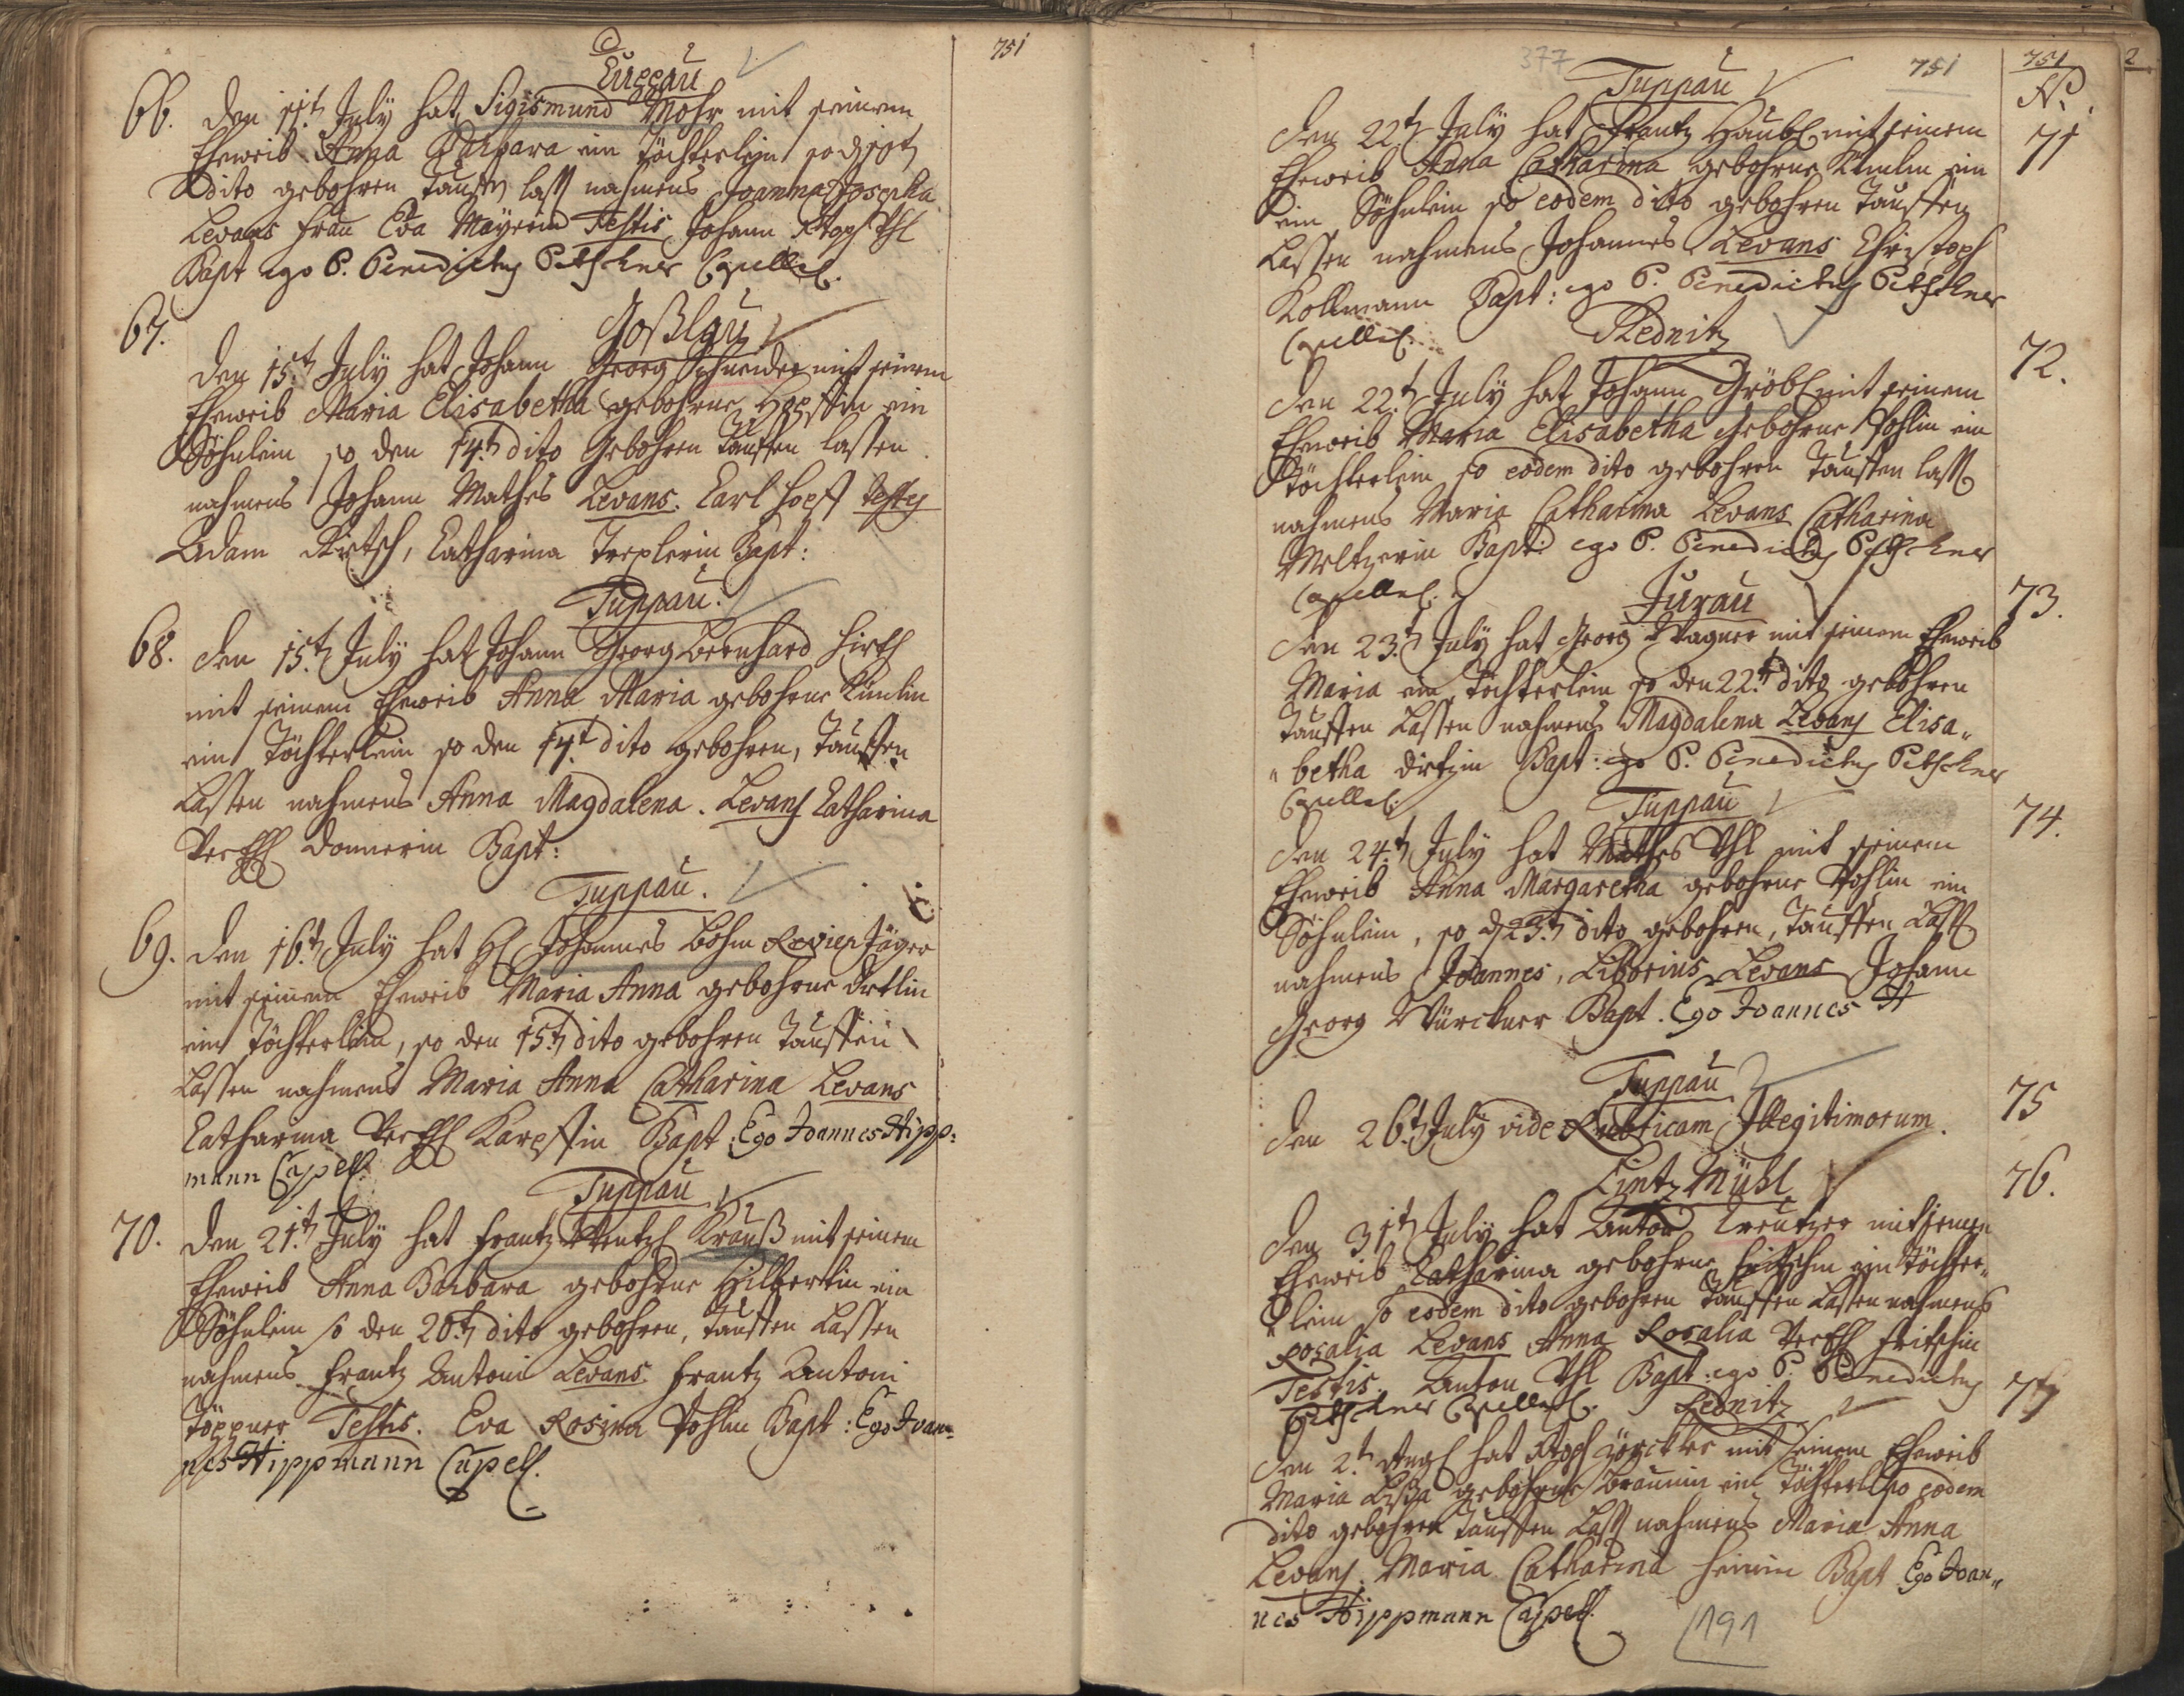 751
Tuppau
66. Den 11t July hat Sigismund Mohr mit seinem
Eheweib Anna Barbara ein Töchterlein so
dito gebohren Tauffen lass nahmens Joanna Josepha
Levans Frau Eva Mayerin Testis Johann Stoph Uhl
Bapt ego P. Benedictus Petschner Capellel.
Goßlau
67.
Den 15t July hat Johann Georg Schneider mit seinem
Eheweib Maria Elisabetha gebohrne Hopffin ein
Söhnlein so den 14t dito Gebohren Tauffen lassen
nahmens Johann Mathes Levans. Carl Hopff testes
Adam Dietsch, Catharina Trexlerin Bapt:
Tuppau.
68. Den 15t July hat Johann Georg Bernhard Hirth
mit seinem Eheweib Anna Maria gebohrne
ein Töchterlein so den 14t dito gebohren, Tauffen
Lassen nahmens Anna Magdalena. Levans Catharina
Donnerin Bapt:
Tuppau.
69. Den 16t July hat H Johannes Böhm Revier Jäger
mit seinem Eheweib Maria Anna gebohrne
ein Töchterlein, so den 15t dito gebohren Tauffen
Lassen nahmens Maria Anna Catharina Levans
Catharina Karpffin Bapt: Ego Joannes Hipp:
mann Capell.
Tuppau
70. Den 21t July hat Frantz Wentzl Krauß mit seinem
Eheweib Anna Barbara gebohrne Hilbertin ein
Söhnlein so den 20t dito gebohren, Tauffen Lassen
nahmens Frantz Antoni Levans. Frantz Antoni
Töppner Testis. Eva Rosina Pohlin Bapt: Ego Joan=
nes Hippmann Capell.
377
751
751
2
N.
Tuppau
Den 22t July hat Frantz Häubl mit seinem 71
Eheweib Anna Catharina gebohrne ein
ein Söhnlein so eodem dito gebohren Tauffen
Lassen nahmens Johannes Levans Christoph
Kollmann Bapt: ego P. Benedictus Petschner
Capellel.
Rednitz
72.
Den 22t July hat Johann Gröbl mit seinem
Eheweib Maria Elisabetha Gebohrne Pohlin ein
Töchterlein so eodem dito gebohren Tauffen lass
nahmens Maria Catharina Levans Catharina
Meltzerin Bapt: ego P. Benedictus Petschner
Capellel.
Jurau
73.
Den 23t July hat Georg Wagner mit seinem Eheweib
Maria ein Töchterlein so den 22t dito gebohren
Tauffen Lassen nahmens Magdalena Levans Elisa„
„betha Bapt: ego P. Benedictus Petschner
Capellel.
Tuppau
74.
Den 24t July hat Mathes Uhl mit seinem
Eheweib Anna Margaretha gebohrne Pohlin ein
Söhnlein, so d 23t dito gebohren, Tauffen Lass
nahmens Joannes, Liborius Levans Johann
Georg Würckner Bapt. Ego Joannes H
Tuppau
75
Den 26t July vide Rubricam Illegitimorum.
Lintz Mühl
76.
Den 31t July hat Anton Kreutzer mit seinem
Eheweib Catharina gebohrne Fritschin ein Töchter„
„lein so eodem dito gebohren Tauffen Lassen nahmens
Rosalia Levans Anna Rosalia Fritschin
Testis. Anton Uhl Bapt: ego P. Benedictus
Petschner Capellel. Rednitz 77
Den 2t Aug hat Stoph mit seinem Eheweib
Maria Lißa gebohrne Braunin ein Töchterl so eodem
dito gebohren Tauffen Lass nahmens Maria Anna
Levans. Maria Catharina Heinin Bapt Ego Joan„
nes Hippmann Capell.
191